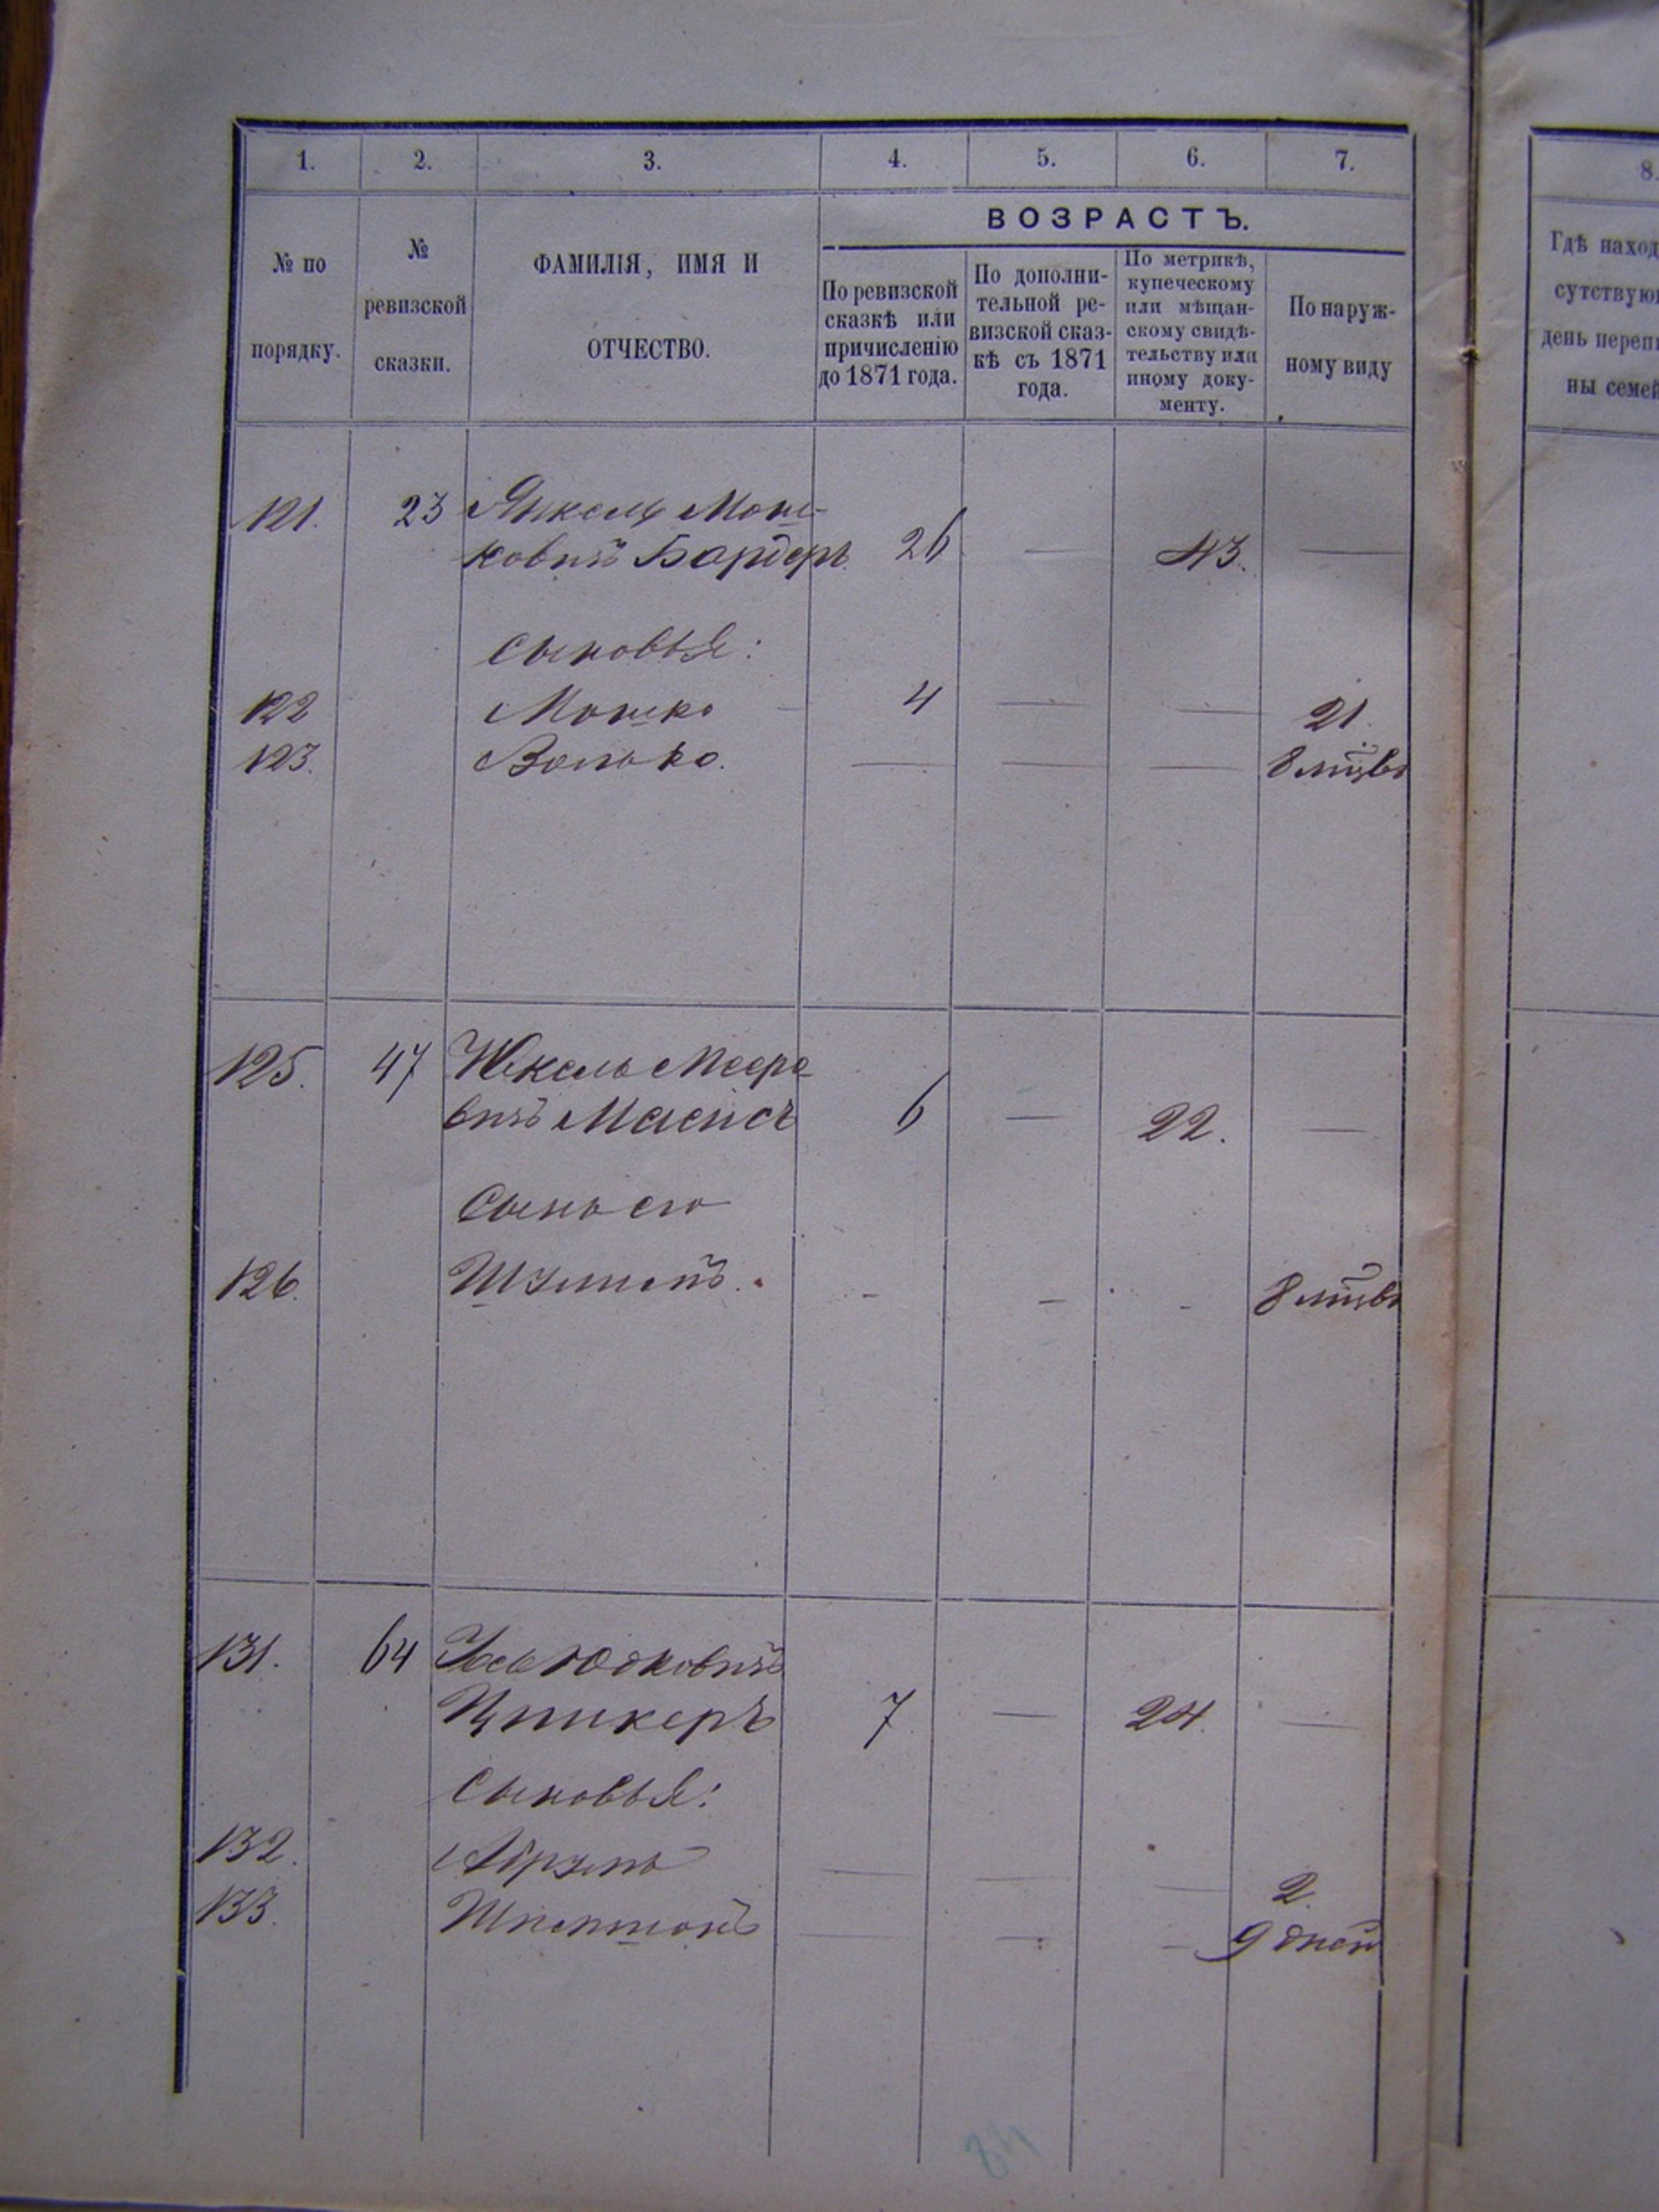 1. 2. 3. 4. 5. 6. 7.
8.
ВОЗРАСТЪ.
№ по
порядку.
№
ревизской
сказки.
ФАМИЛІЯ, ИМЯ И
ОТЧЕСТВО.
По ревизской
сказкѣ или
причисленію
до 1871 года.
По дополни-
тельной ре-
визской сказ-
кѣ съ 1871
года.
По метрикѣ,
купеческому
или мѣщан-
скому свидѣ-
тельству или
иному доку-
менту.
По наруж-
ному виду
Гдѣ наход
сутствую
день переп
ны семей
121. 23 Янкель Мош-
ковичъ Бардеръ 26 — 43. —
Сыновья:
122 Мошко — 4 — — 21.
123. Волько. — — — 8 мцвъ
125. 47 Юкель Мееро-
вичъ 6 — 22. —
Сынъ его
126. - - - 8 мцвъ
131. 64 Юдковичъ
Цпикеръ 7 — 24. —
Сыновья:
132. — — — 2.
133. — — — 9 дней
84